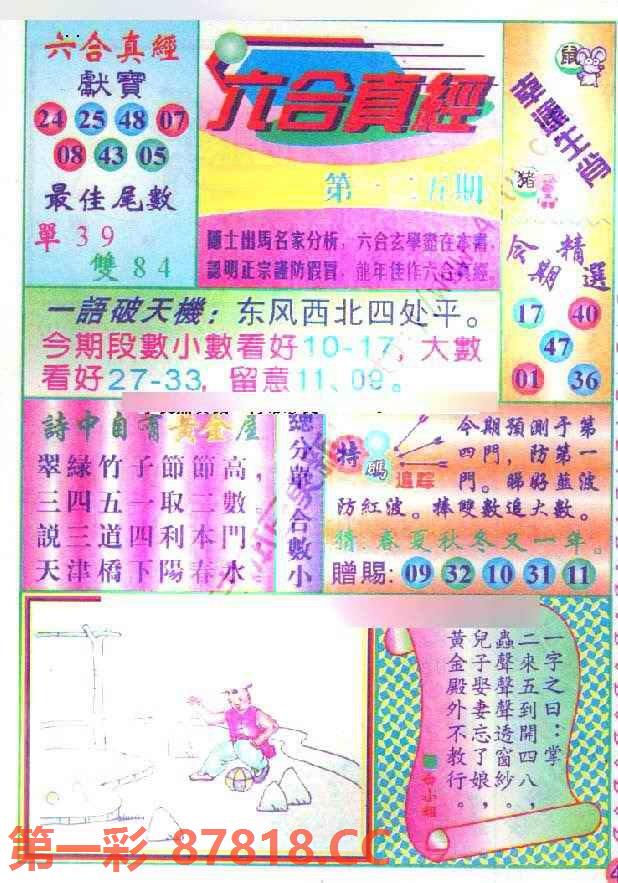 六合真經
獻寶
24 25 48 07
08 43 05
最佳尾數
單 3 9
雙 8 4
六合真經
第一二五期
隱士出馬名家分析，六合玄學盡在本書，
認明正宗謹防假冒，龍年佳作六合真經。
鼠
幸運生肖
豬
今期精選
17 40
47
01 36
一語破天機：东风西北四处平。
今期段數小數看好10-17，大數
看好27-33，留意11、09。
詩中自有黃金屋
翠綠竹子節節高，
三四五一取二數。
説三道四利本門
天津橋下陽春水
總分單合數小
特碼追踪
今期預測于第
四門，防第一
門。睇好藍波
防紅波。捧雙數追大數。
猜：春夏秋冬又一年。
贈賜：09 32 10 31 11
一字之曰：掌
二來五到開四八，
蟲聲聲聲透窗紗。
兒子娶妻忘了娘，
黃金殿外不教行。
第一彩 87818.CC